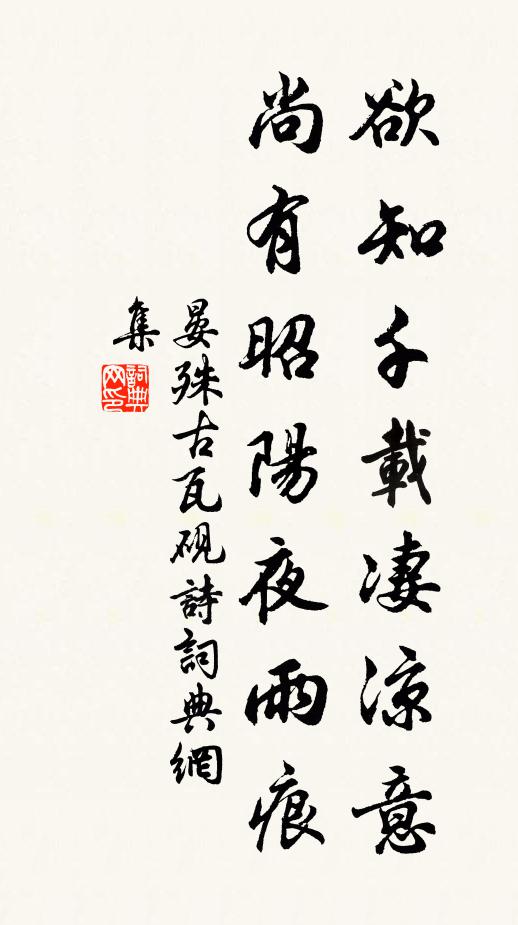 欲知千載凄涼意
尚有昭陽夜雨痕
晏殊古瓦硯詩詞典網
集
詞典网印